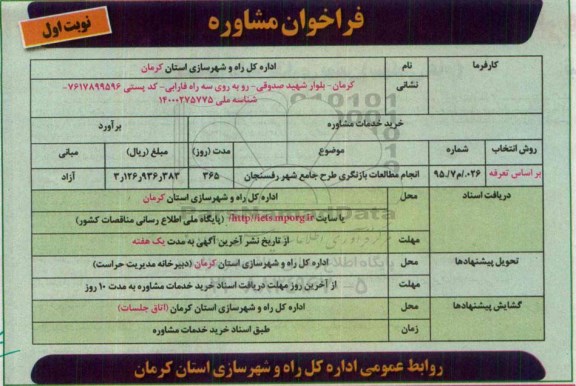 فراخوان مشاوره
نوبت اول
کارفرما نام اداره کل راه و شهرسازی استان کرمان
نشانی کرمان- بلوار شهید صدوقی- رو به روی سه راه فارابی- کد پستی ۷۶۱۷۸۹۹۵۹۶-
شناسه ملی ۱۴۰۰۰۲۷۵۷۷۵
خرید خدمات مشاوره برآورد
روش انتخاب شماره موضوع مدت (روز) مبلغ (ریال) مبانی
بر اساس تعرفه ۹۵/۷/م/۰۲۶ انجام مطالعات بازنگری طرح جامع شهر رفسنجان ۳۶۵ ۳,۱۲۶,۹۳۶,۳۸۳ آزاد
دریافت اسناد محل اداره کل راه و شهرسازی استان کرمان
یا سایت http://iets.mporg.ir (پایگاه ملی اطلاع رسانی مناقصات کشور)
مهلت از تاریخ نشر آخرین آگهی به مدت یک هفته
تحویل پیشنهادها محل اداره کل راه و شهرسازی استان کرمان (دبیرخانه مدیریت حراست)
مهلت از آخرین روز مهلت دریافت اسناد خرید خدمات مشاوره به مدت ۱۰ روز
گشایش پیشنهادها محل اداره کل راه و شهرسازی استان کرمان (اتاق جلسات)
زمان طبق اسناد خرید خدمات مشاوره
روابط عمومی اداره کل راه و شهرسازی استان کرمان